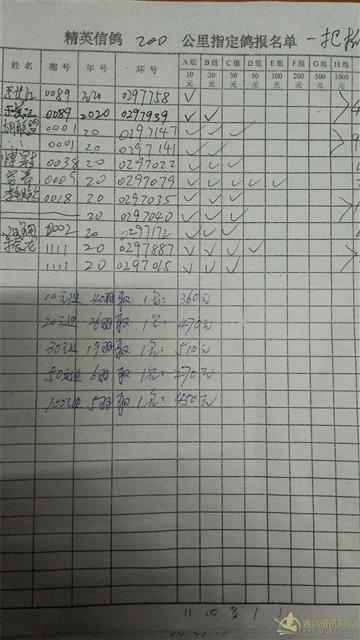 精英信鸽 200 公里指定鸽报名单 一把抓
姓名 棚号 年号 环号 A组 B组 C组 D组 E组 F组 G组 H组
10元 20元 30元 50元 100元 200元 500元 1000元
0089 2020 0297758 ✓
0089 2020 0297939 ✓ ✓
0001 20 0297147 ✓ ✓ ✓
0001 20 0297141 ✓ ✓ ✓
0038 20 0297022 ✓ ✓ ✓
0005 20 0297079 ✓ ✓ ✓ ✓ ✓
0018 20 0297035 ✓ ✓ ✓
20 0297040 ✓ ✓ ✓
0002 20 0297172 ✓ ✓ ✓
1111 20 0297887 ✓ ✓ ✓ ✓
1111 20 0297015 ✓ ✓ ✓
10元组 40羽取 1名: 360元
20元组 26羽取 1名: 470元
30元组 19羽取 1名: 510元
50元组 6羽取 1名: 270元
100元组 5羽取 1名: 450元
赛鸽资讯网